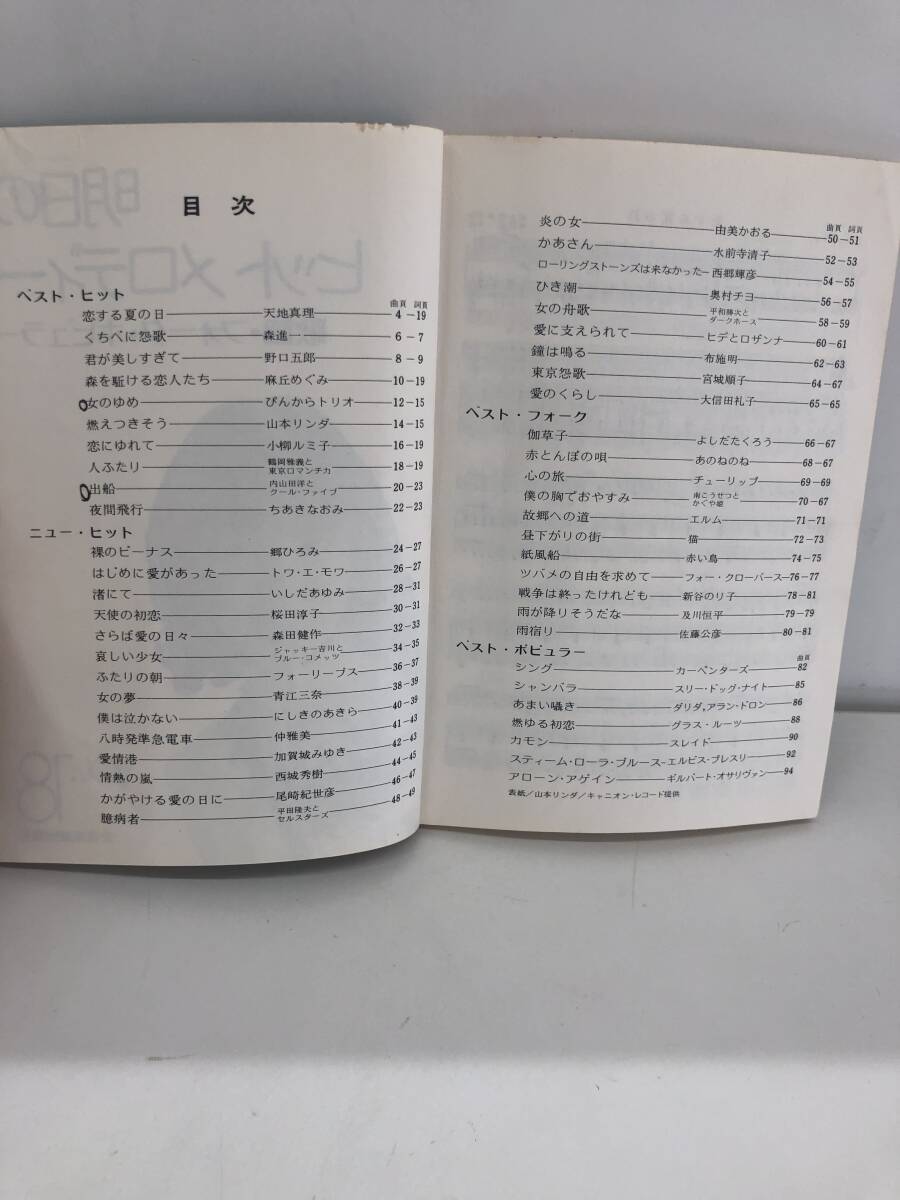 目次
ベスト・ヒット
曲頁 詞頁
恋する夏の日――天地真理――4－19
くちべに怨歌――森進一――6－7
君が美しすぎて――野口五郎――8－9
森を駈ける恋人たち――麻丘めぐみ――10－19
女のゆめ――ぴんからトリオ――12－15
燃えつきそう――山本リンダ――14－15
恋にゆれて――小柳ルミ子――16－19
人ふたり――鶴岡雅義と東京ロマンチカ――18－19
出船――内山田洋とクール・ファイブ――20－23
夜間飛行――ちあきなおみ――22－23
ニュー・ヒット
裸のビーナス――郷ひろみ――24－27
はじめに愛があった――トワ・エ・モワ――26－27
渚にて――いしだあゆみ――28－31
天使の初恋――桜田淳子――30－31
さらば愛の日々――森田健作――32－33
哀しい少女――ジャッキー吉川とブルー・コメッツ――34－35
ふたりの朝――フォーリーブス――36－37
女の夢――青江三奈――38－39
僕は泣かない――にしきのあきら――40－39
八時発準急電車――仲雅美――41－43
愛情港――加賀城みゆき――42－43
情熱の嵐――西城秀樹――44－45
かがやける愛の日に――尾崎紀世彦――46－47
臆病者――平田隆夫とセルスターズ――48－49
曲頁 詞頁
炎の女――由美かおる――50－51
かあさん――水前寺清子――52－53
ローリングストーンズは来なかった――西郷輝彦――54－55
ひき潮――奥村チヨ――56－57
女の舟歌――平和勝次とダークホース――58－59
愛に支えられて――ヒデとロザンナ――60－61
鐘は鳴る――布施明――62－63
東京怨歌――宮城順子――64－67
愛のくらし――大信田礼子――65－65
ベスト・フォーク
伽草子――よしだたくろう――66－67
赤とんぼの唄――あのねのね――68－67
心の旅――チューリップ――69－69
僕の胸でおやすみ――南こうせつとかぐや姫――70－67
故郷への道――エルム――71－71
昼下がりの街――猫――72－73
紙風船――赤い鳥――74－75
ツバメの自由を求めて――フォー・クローバース――76－77
戦争は終ったけれども――新谷のり子――78－81
雨が降りそうだな――及川恒平――79－79
雨宿り――佐藤公彦――80－81
ベスト・ポピュラー
曲頁
シング――カーペンターズ――82
シャンバラ――スリー・ドッグ・ナイト――85
あまい囁き――ダリダ,アラン・ドロン――86
燃ゆる初恋――グラス・ルーツ――88
カモン――スレイド――90
スティーム・ローラ・ブルース――エルビス・プレスリ――92
アローン・アゲイン――ギルバート・オサリヴァン――94
表紙／山本リンダ／キャニオン・レコード提供